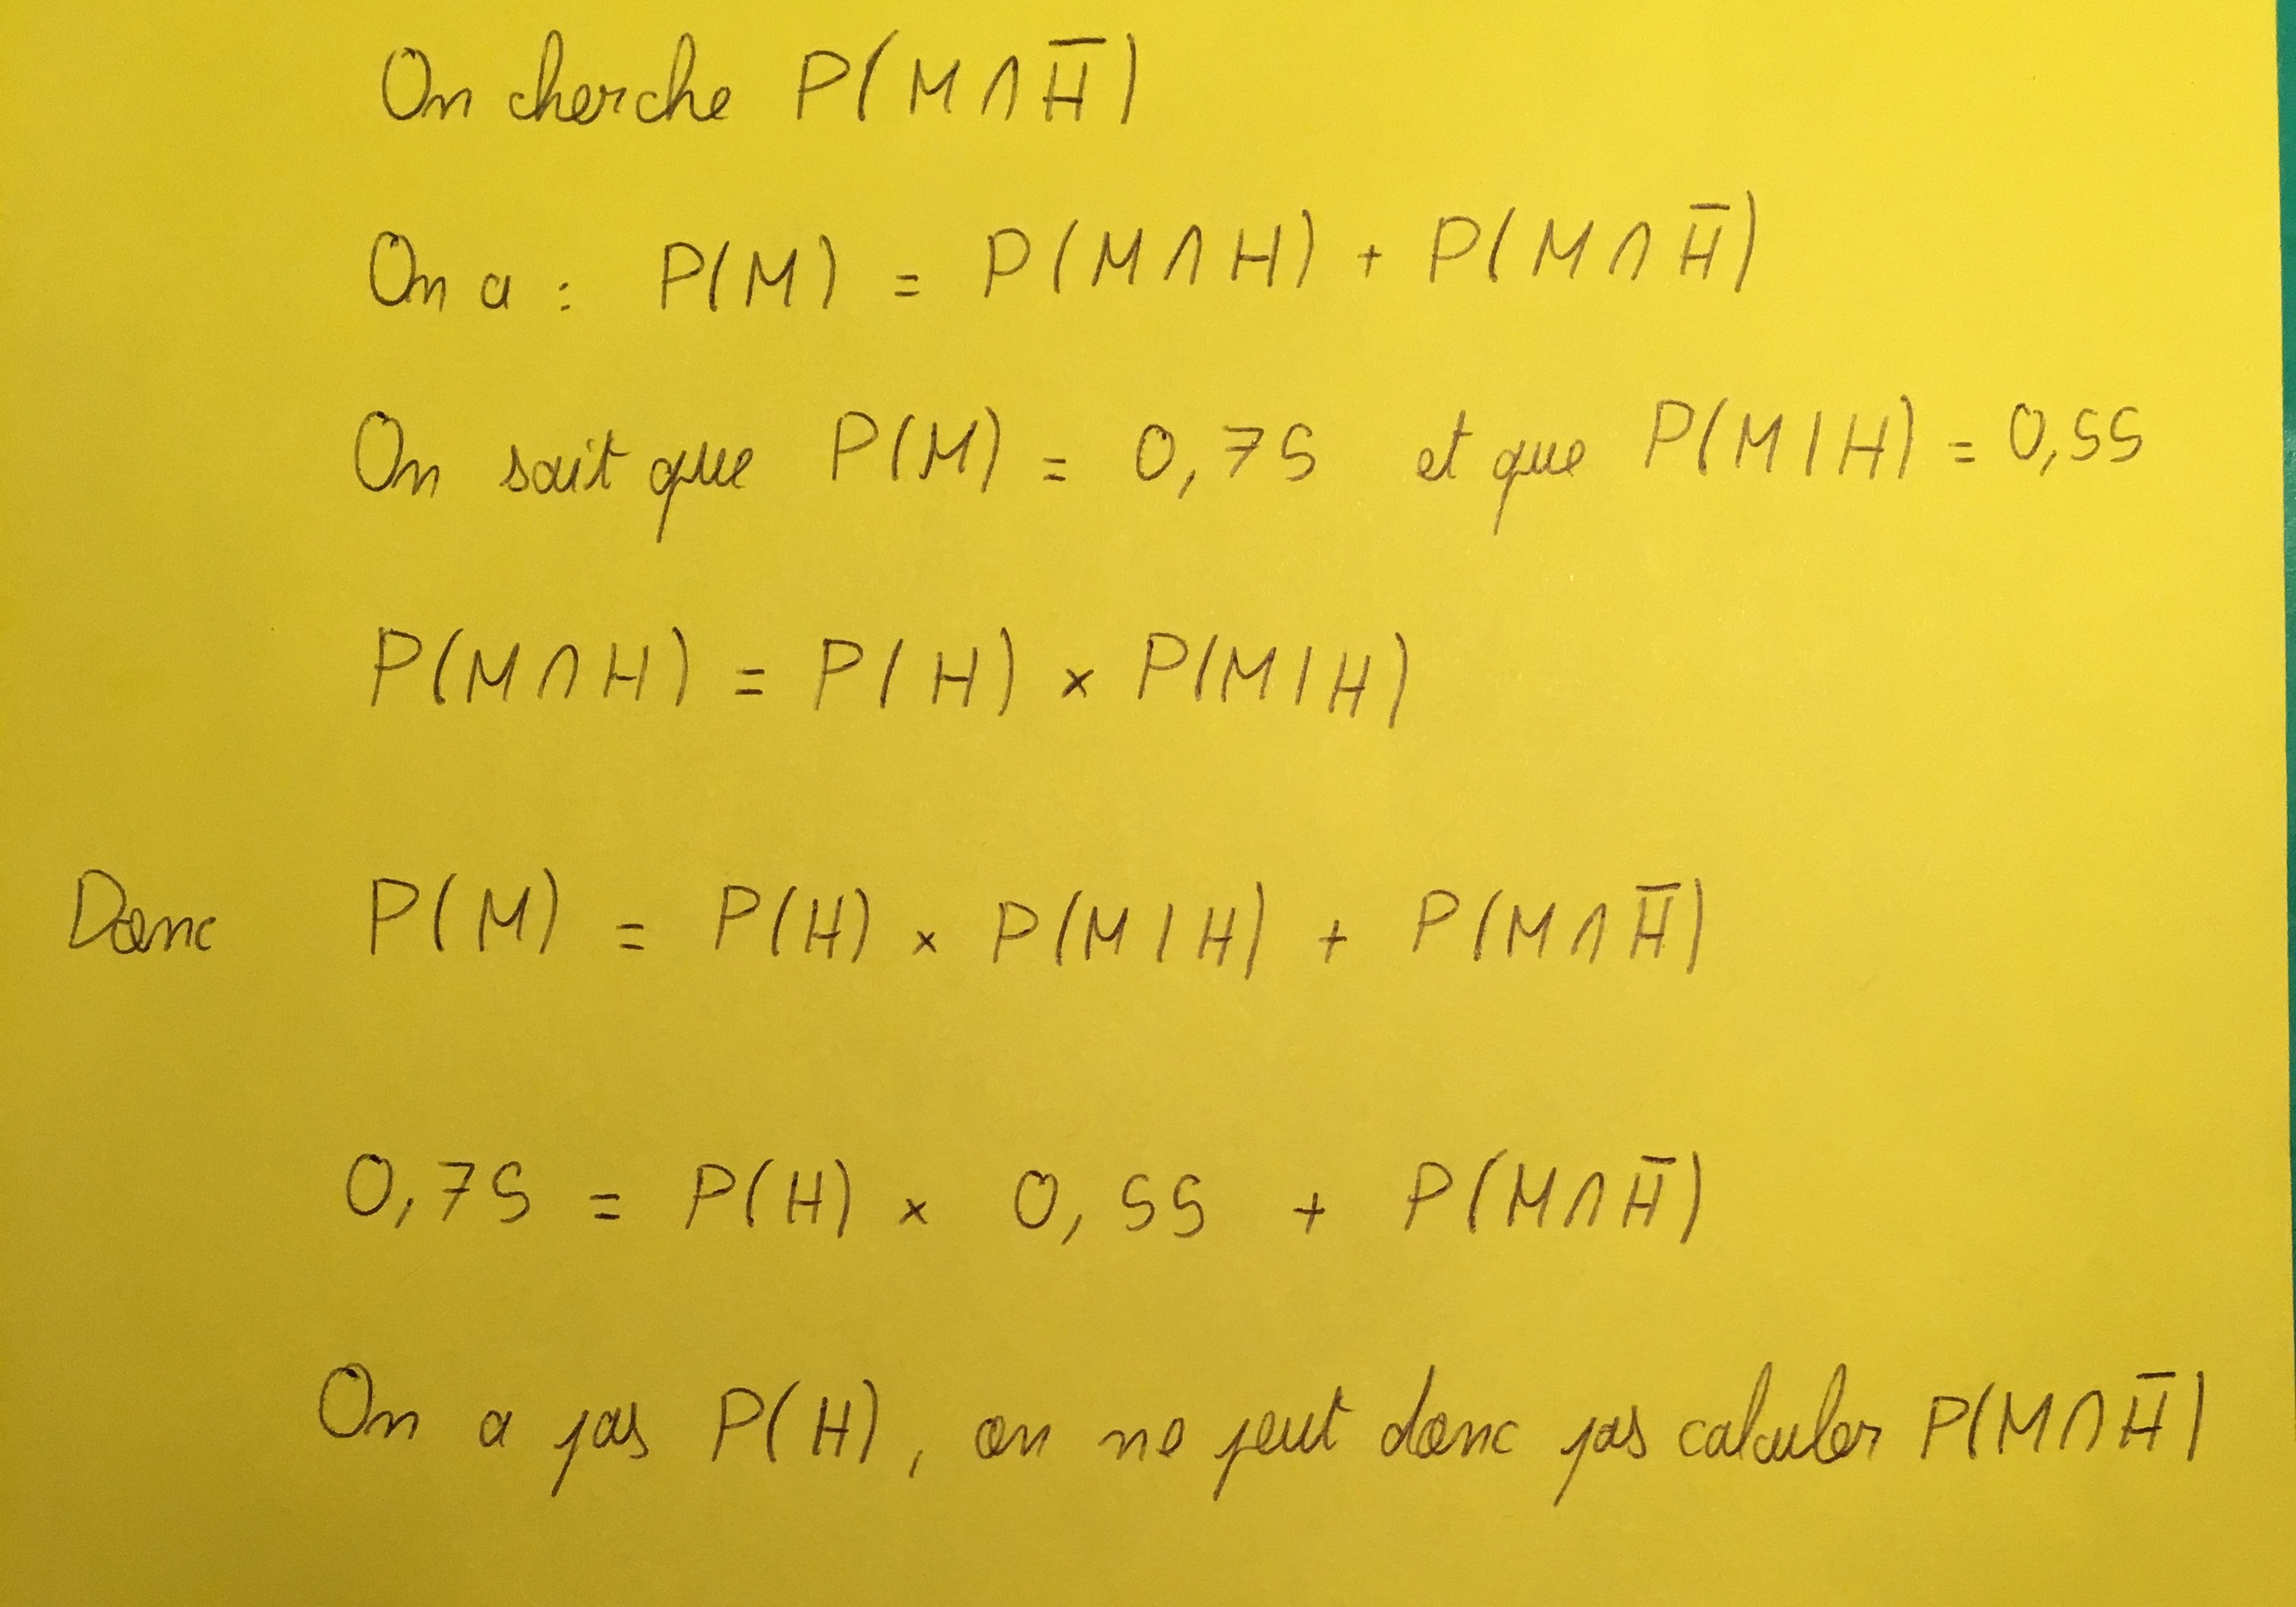 On cherche P(M∩H̅)
On a : P(M) = P(M∩H) + P(M∩H̅)
On sait que P(M) = 0,75 et que P(M|H) = 0,55
P(M∩H) = P(H) × P(M|H)
Donc P(M) = P(H) × P(M|H) + P(M∩H̅)
0,75 = P(H) × 0,55 + P(M∩H̅)
On a pas P(H), on ne peut donc pas calculer P(M∩H̅)